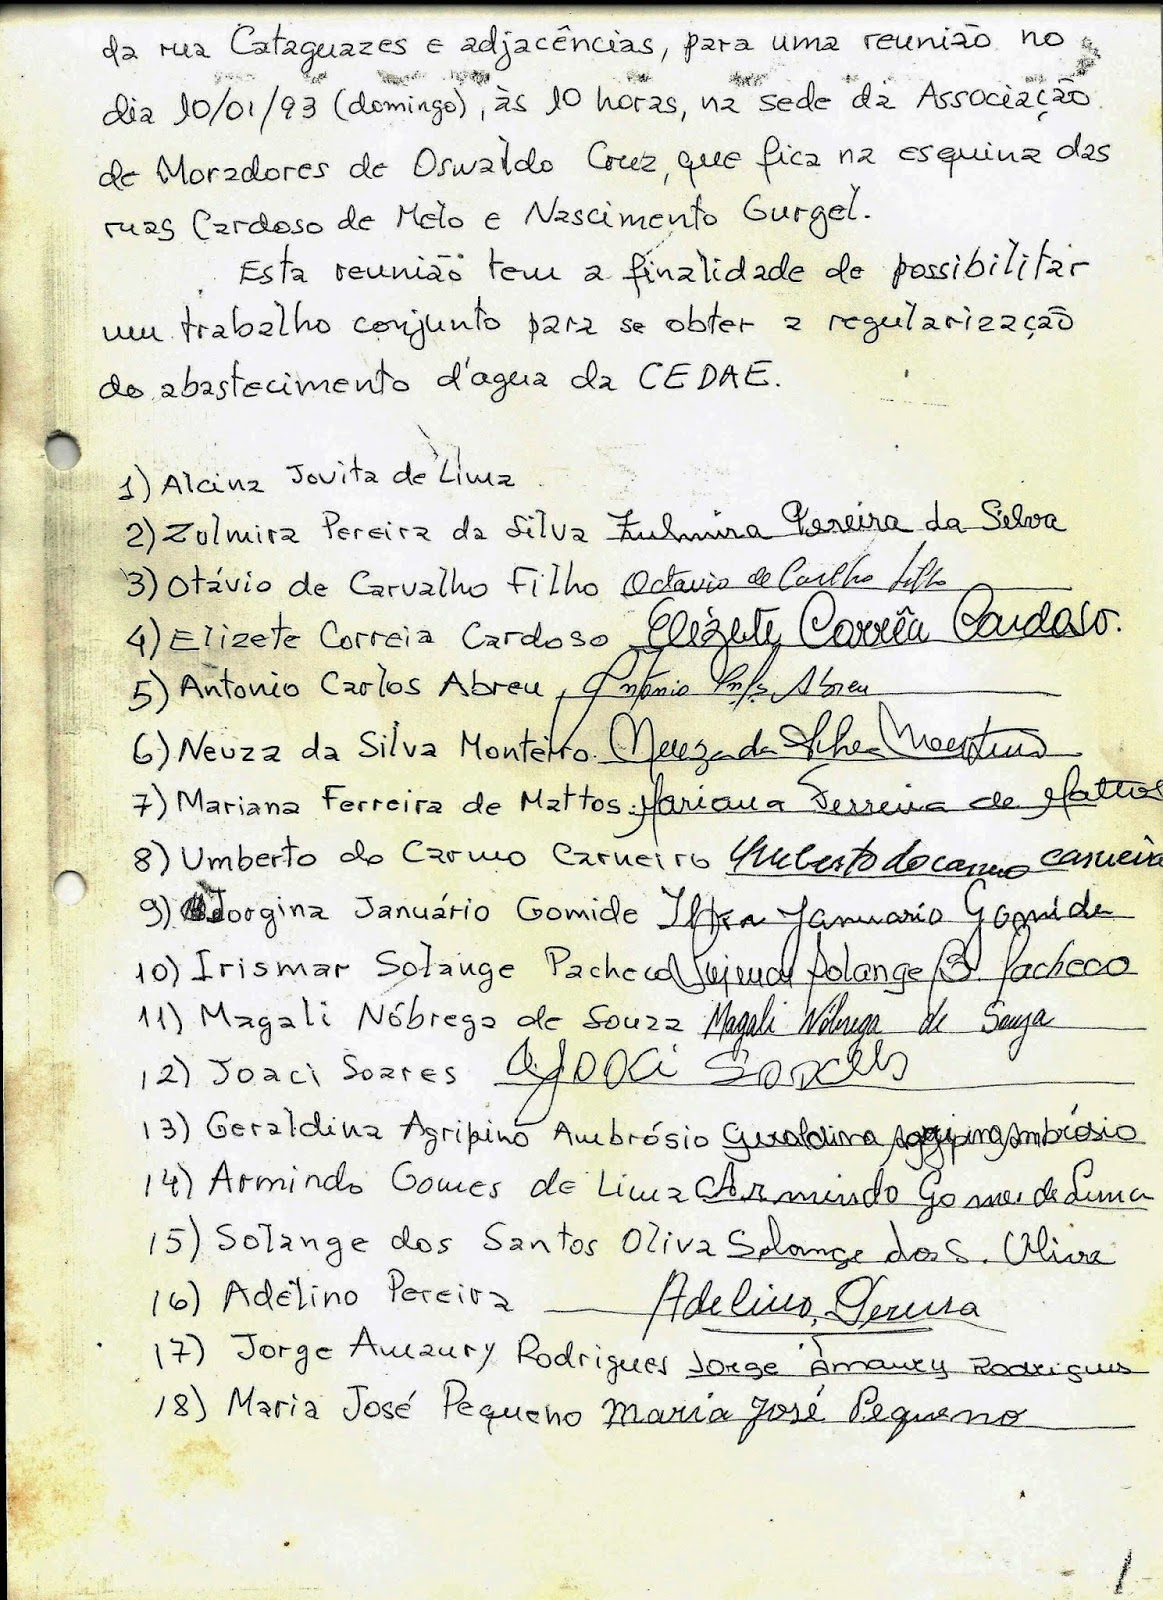 da rua Cataguazes e adjacências, para uma reunião no
dia 10/01/93 (domingo), às 10 horas, na sede da Associação
de Moradores de Oswaldo Cruz, que fica na esquina das
ruas Cardoso de Melo e Nascimento Gurgel.
Esta reunião tem a finalidade de possibilitar
um trabalho conjunto para se obter a regularização
do abastecimento d'agua da CEDAE.
1) Alcina Jovita de Lima
2) Zulmira Pereira da Silva Zulmira Pereira da Selva
3) Otávio de Carvalho Filho Octavio de Filho
4) Elizete Correia Cardoso Elizete Corrêa Cardoso.
5) Antonio Carlos Abreu, Antonio Abreu
6) Neuza da Silva Monteiro. Neuza da Silva Monteiro
7) Mariana Ferreira de Mattos. Mariana Ferreira de Mattos
8) Umberto do Carmo Carneiro Umberto do carmo carneiro
9) Jorgina Januário Gomide Januario Gomide
10) Irismar Solange Pacheco Solange B. Pacheco
11) Magali Nóbrega de Souza Magali Nóbrega de Souza
12) Joaci Soares Joaci Soares
13) Geraldina Agripino Ambrósio Geraldina Ambrósio
14) Armindo Gomes de Lima Armindo Gomes de Lima
15) Solange dos Santos Oliva Solange dos S. Oliva
16) Adelino Pereira Adelino Pereira
17) Jorge Amaury Rodrigues Jorge Amaury Rodrigues
18) Maria José Pequeno Maria José Pequeno
1